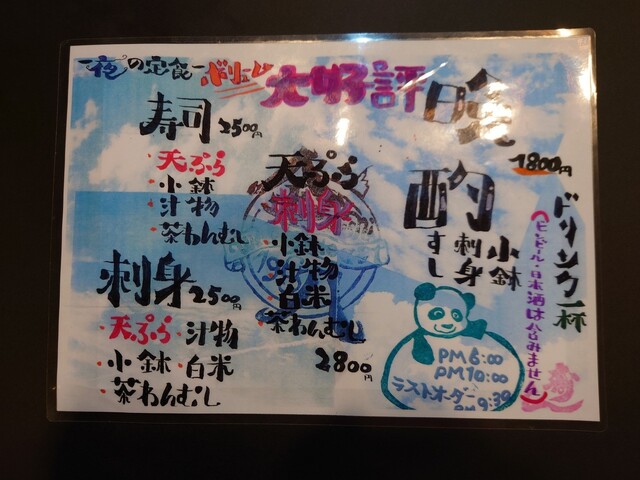 夜の定食
ボリューム
大好評
晩酌
1800円
ドリンク一杯
(ビンビール・日本酒は含みません)
小鉢
刺身
すし
寿司 2500円
・天ぷら
・小鉢
・汁物
・茶わんむし
天ぷら
・刺身
・小鉢
・汁物
・白米
・茶わんむし
2800円
刺身 2500円
・天ぷら ・汁物
・小鉢 ・白米
・茶わんむし
PM6:00
PM10:00
ラストオーダー
PM9:30